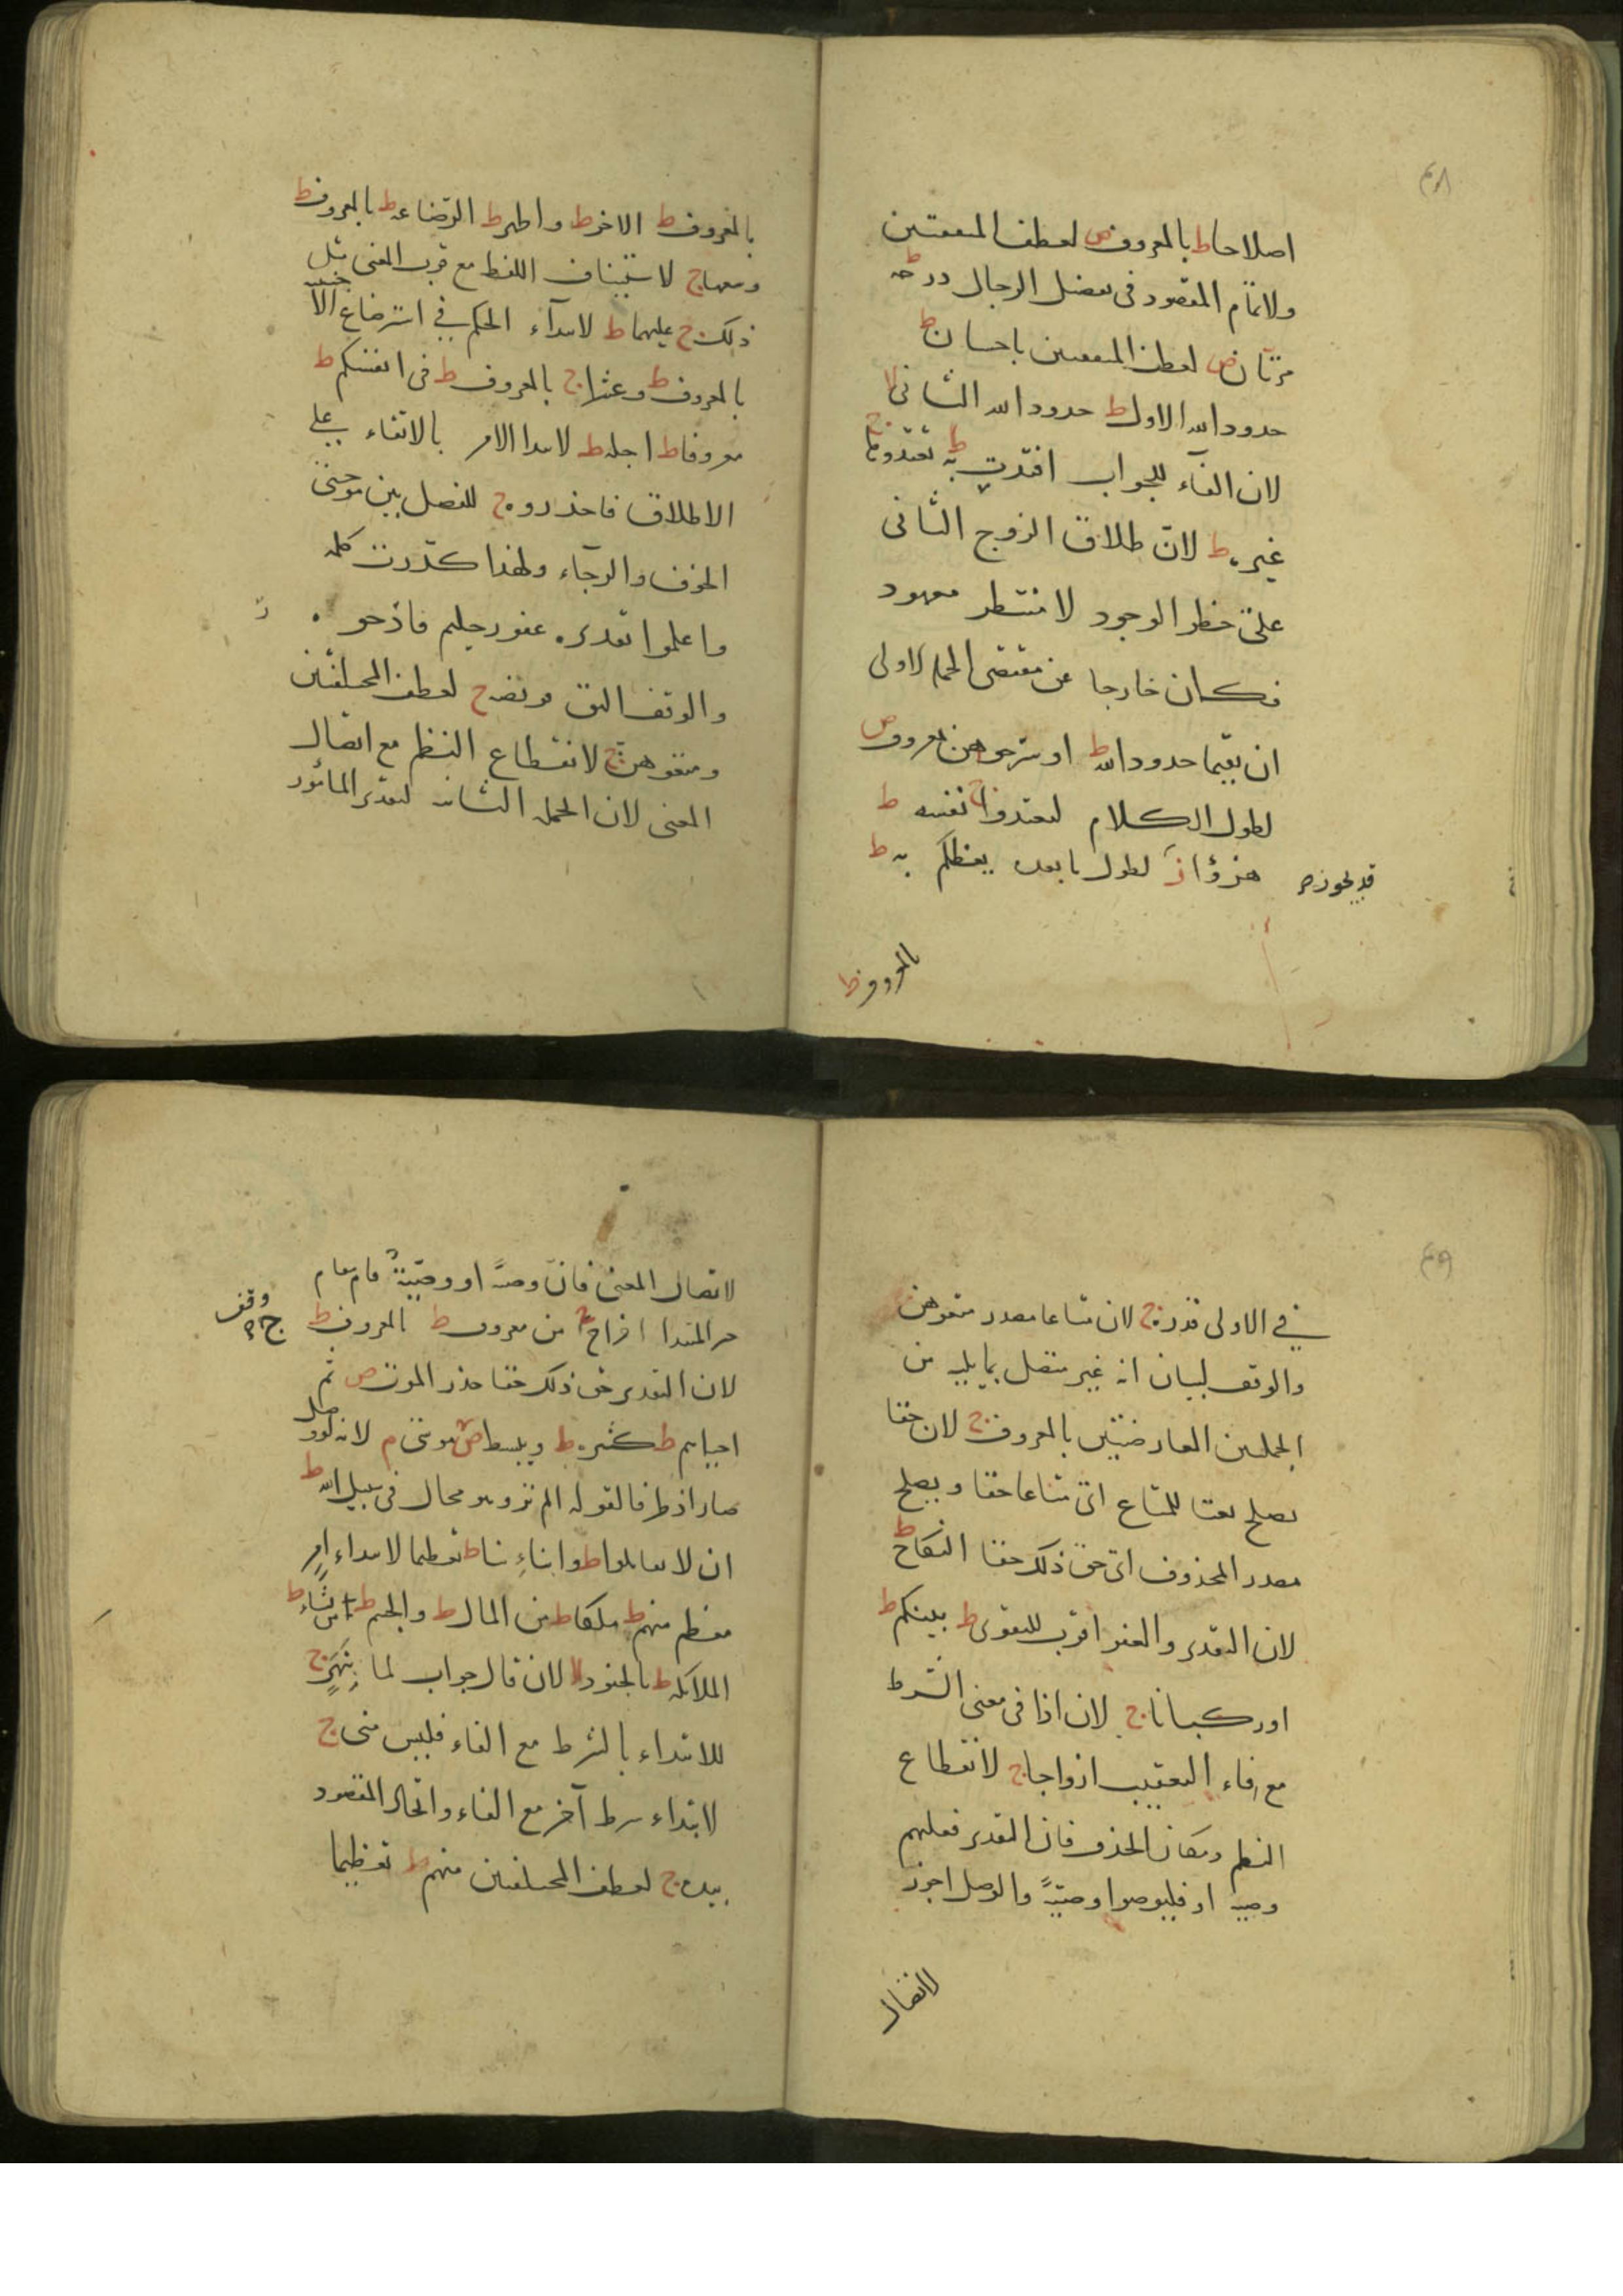 ٤٨
اصلاحا ط بالمعروف ص لعطف المتفقتين
ولاتمام المقصود فى تفضل الرجال درجة ط
مرتان ص لعطف المتفقتين باحسان ط
حدود الله الاول ط حدود الله الثانى لا
لان الفآء للجواب افتدت به ط تعتدوها ج
غيره ط لان طلاق الزوج الثانى
على خطر الوجود لا منتظر معهود
فكان خارجا عن مقتضى الجملة الاولى
ان يقيما حدود الله ط او سرحوهن بمعروف ص
لطول الكلام لتعتدوا ج نفسه ط
هزؤا ز لطول ما بعده يعظكم به ط
قد يجوز
بالمعروف ط
بالمعروف ط الاخر ط واطهر ط الرضاعة ط بالمعروف ط
وسعها ج لاستيناف اللفظ مع قرب المعنى مثل
ذلك ج عليهما ط لابتدآء الحكم في استرضاع الاجنبية
بالمعروف ط وعشرا ج بالمعروف ط فى انفسكم ط
معروفا ط اجله ط لابتدا الامر بالاتقاء على
الاطلاق فاحذروه ج للفصل بين موجبتى
الخوف والرجآء ولهذا كررت كلمة
واعلموا تقديره غفور حليم فاذحو
والوقف اليق فريضة ج لعطف المختلفتين
ومتعوهن ج لانقطاع النظم مع اتصال
المعنى لان الجملة الثانية لتقدير المأمور
٤٩
في الاولى قدره ج لان متاعا مصدر متعوهن
والوقف لبيان انه غير متصل بما يليه من
الجملتين العارضتين بالمعروف ج لان حقا
يصلح نعتا للمتاع اى متاعا حقا ويصلح
مصدر المحذوف اى حق ذلك حقا النكاح ط
لان التقدير والعفو اقرب للتقوى ط بينكم ط
او ركبانا ج لان اذا فى معنى الشرط
مع فاء التعقيب ازواجا ج لانقطاع
النظم ومكان الحذف فان التقدير فعليهم
وصية او فليوصوا وصيةً والوصل اجوز
لاتصال
لاتصال المعنى فان وصيةً او وصيةٌ قام مقام
خبر المبتدا اخراج ج من معروف ط بالمعروف ط
وقف
لان التقدير حق ذلك حقا حذر الموت ص ثم
احياهم ط كثيرة ط ويبسط ص موسى م لانه لو وصل
صار اذ ظرفا لقوله الم تر وهو محال فى سبيل الله ط
ان لا تقاتلوا ط وابناءِنا ط تعظيما لابتداء امر
معظم منهم ط ملكا ط من المال ط والجسم ط من يشاء ط
الملائكة ط بالجنود لا لان قال جواب لما بنهرٍ ج
للابتداء بالشرط مع الفاء فليس منى ج
لابتداء شرط آخر مع الفاء واتحاد المقصود
بيده ج لعطف المختلفتين منهم ط تعظيما